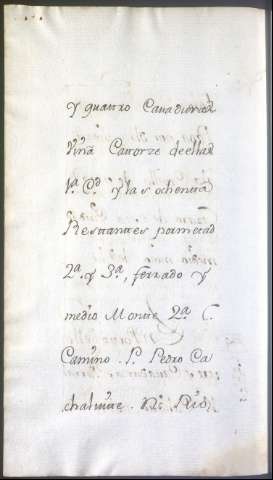 y quattro Cavadurar
Viña Catorze deellar
1ª Cd y las ochenta
Restantres pormetad
2ª y 3ª, ferrado y
medio Monte 2ª C.
Camino. P. Pedro Ca